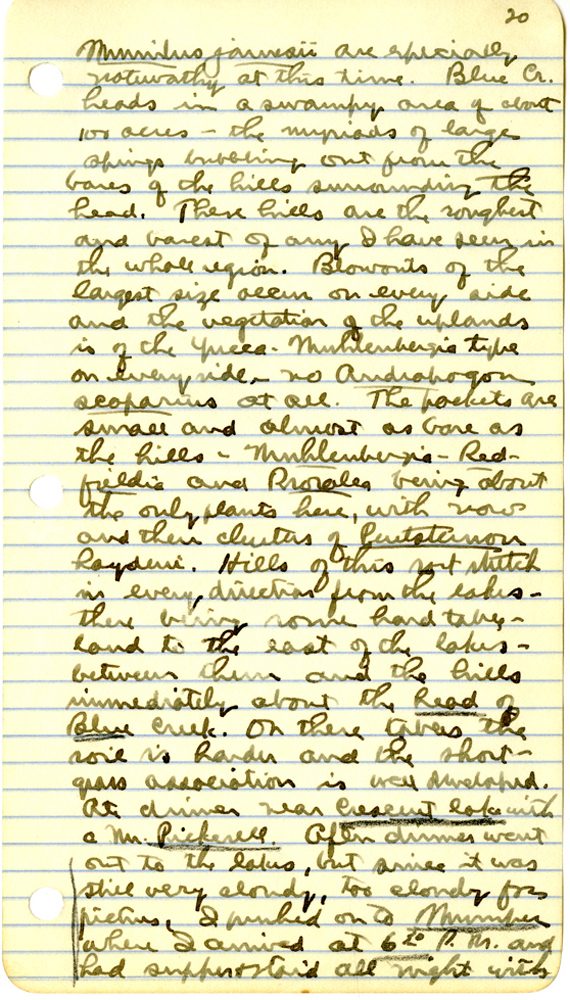 20
Mimulus jamesii are especially
noteworthy at this time. Blue Cr.
heads in a swampy area of about
100 acres - the myriads of large
springs bubbling out from the
bases of the hills surrounding the
head. These hills are the roughest
and barest of any I have seen in
the whole region. Blowouts of the
largest size occur on every side
and the vegetation of the uplands
is of the Yucca-Muhlenbergia type
on every side - no Andropogon
scoparius at all. The pockets are
small and almost as bare as
the hills - Muhlenbergia - Red-
fieldia and Psoralea being about
the only plants here, with now
and then clusters of Pentstemon
haydeni. Hills of this sort stretch
in every direction from the lakes -
there being some hard table-
land to the east of the lakes -
between them and the hills
immediately about the head of
Blue Creek. On these tables the
soil is harder and the short-
grass association is well developed.
Ate dinner near Crescent lake with
a Mr. Pickerell. After dinner went
out to the lakes, but since it was
still very cloudy, too cloudy for
pictures, I pushed on to Mumper
where I arrived at 6²⁰ P.M. and
had supper & staid all night with